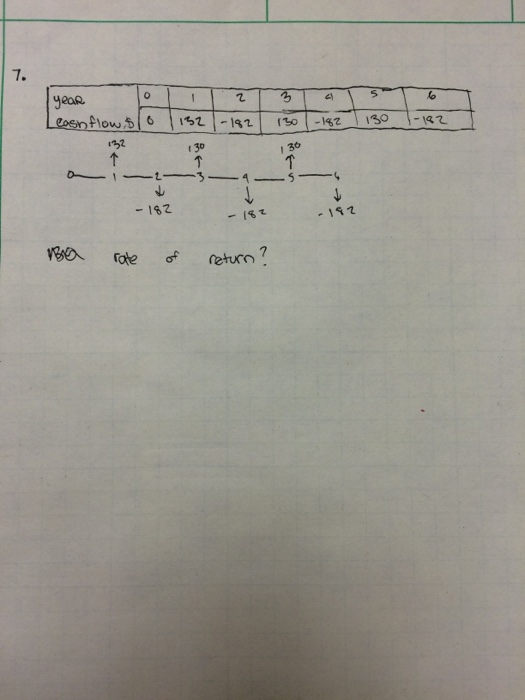 7.
year 0 1 2 3 4 5 6
cashflow, $ 0 132 -182 130 -182 130 -182
132 130 130
0 1 2 3 4 5 6
-182 -182 -182
rate of return?